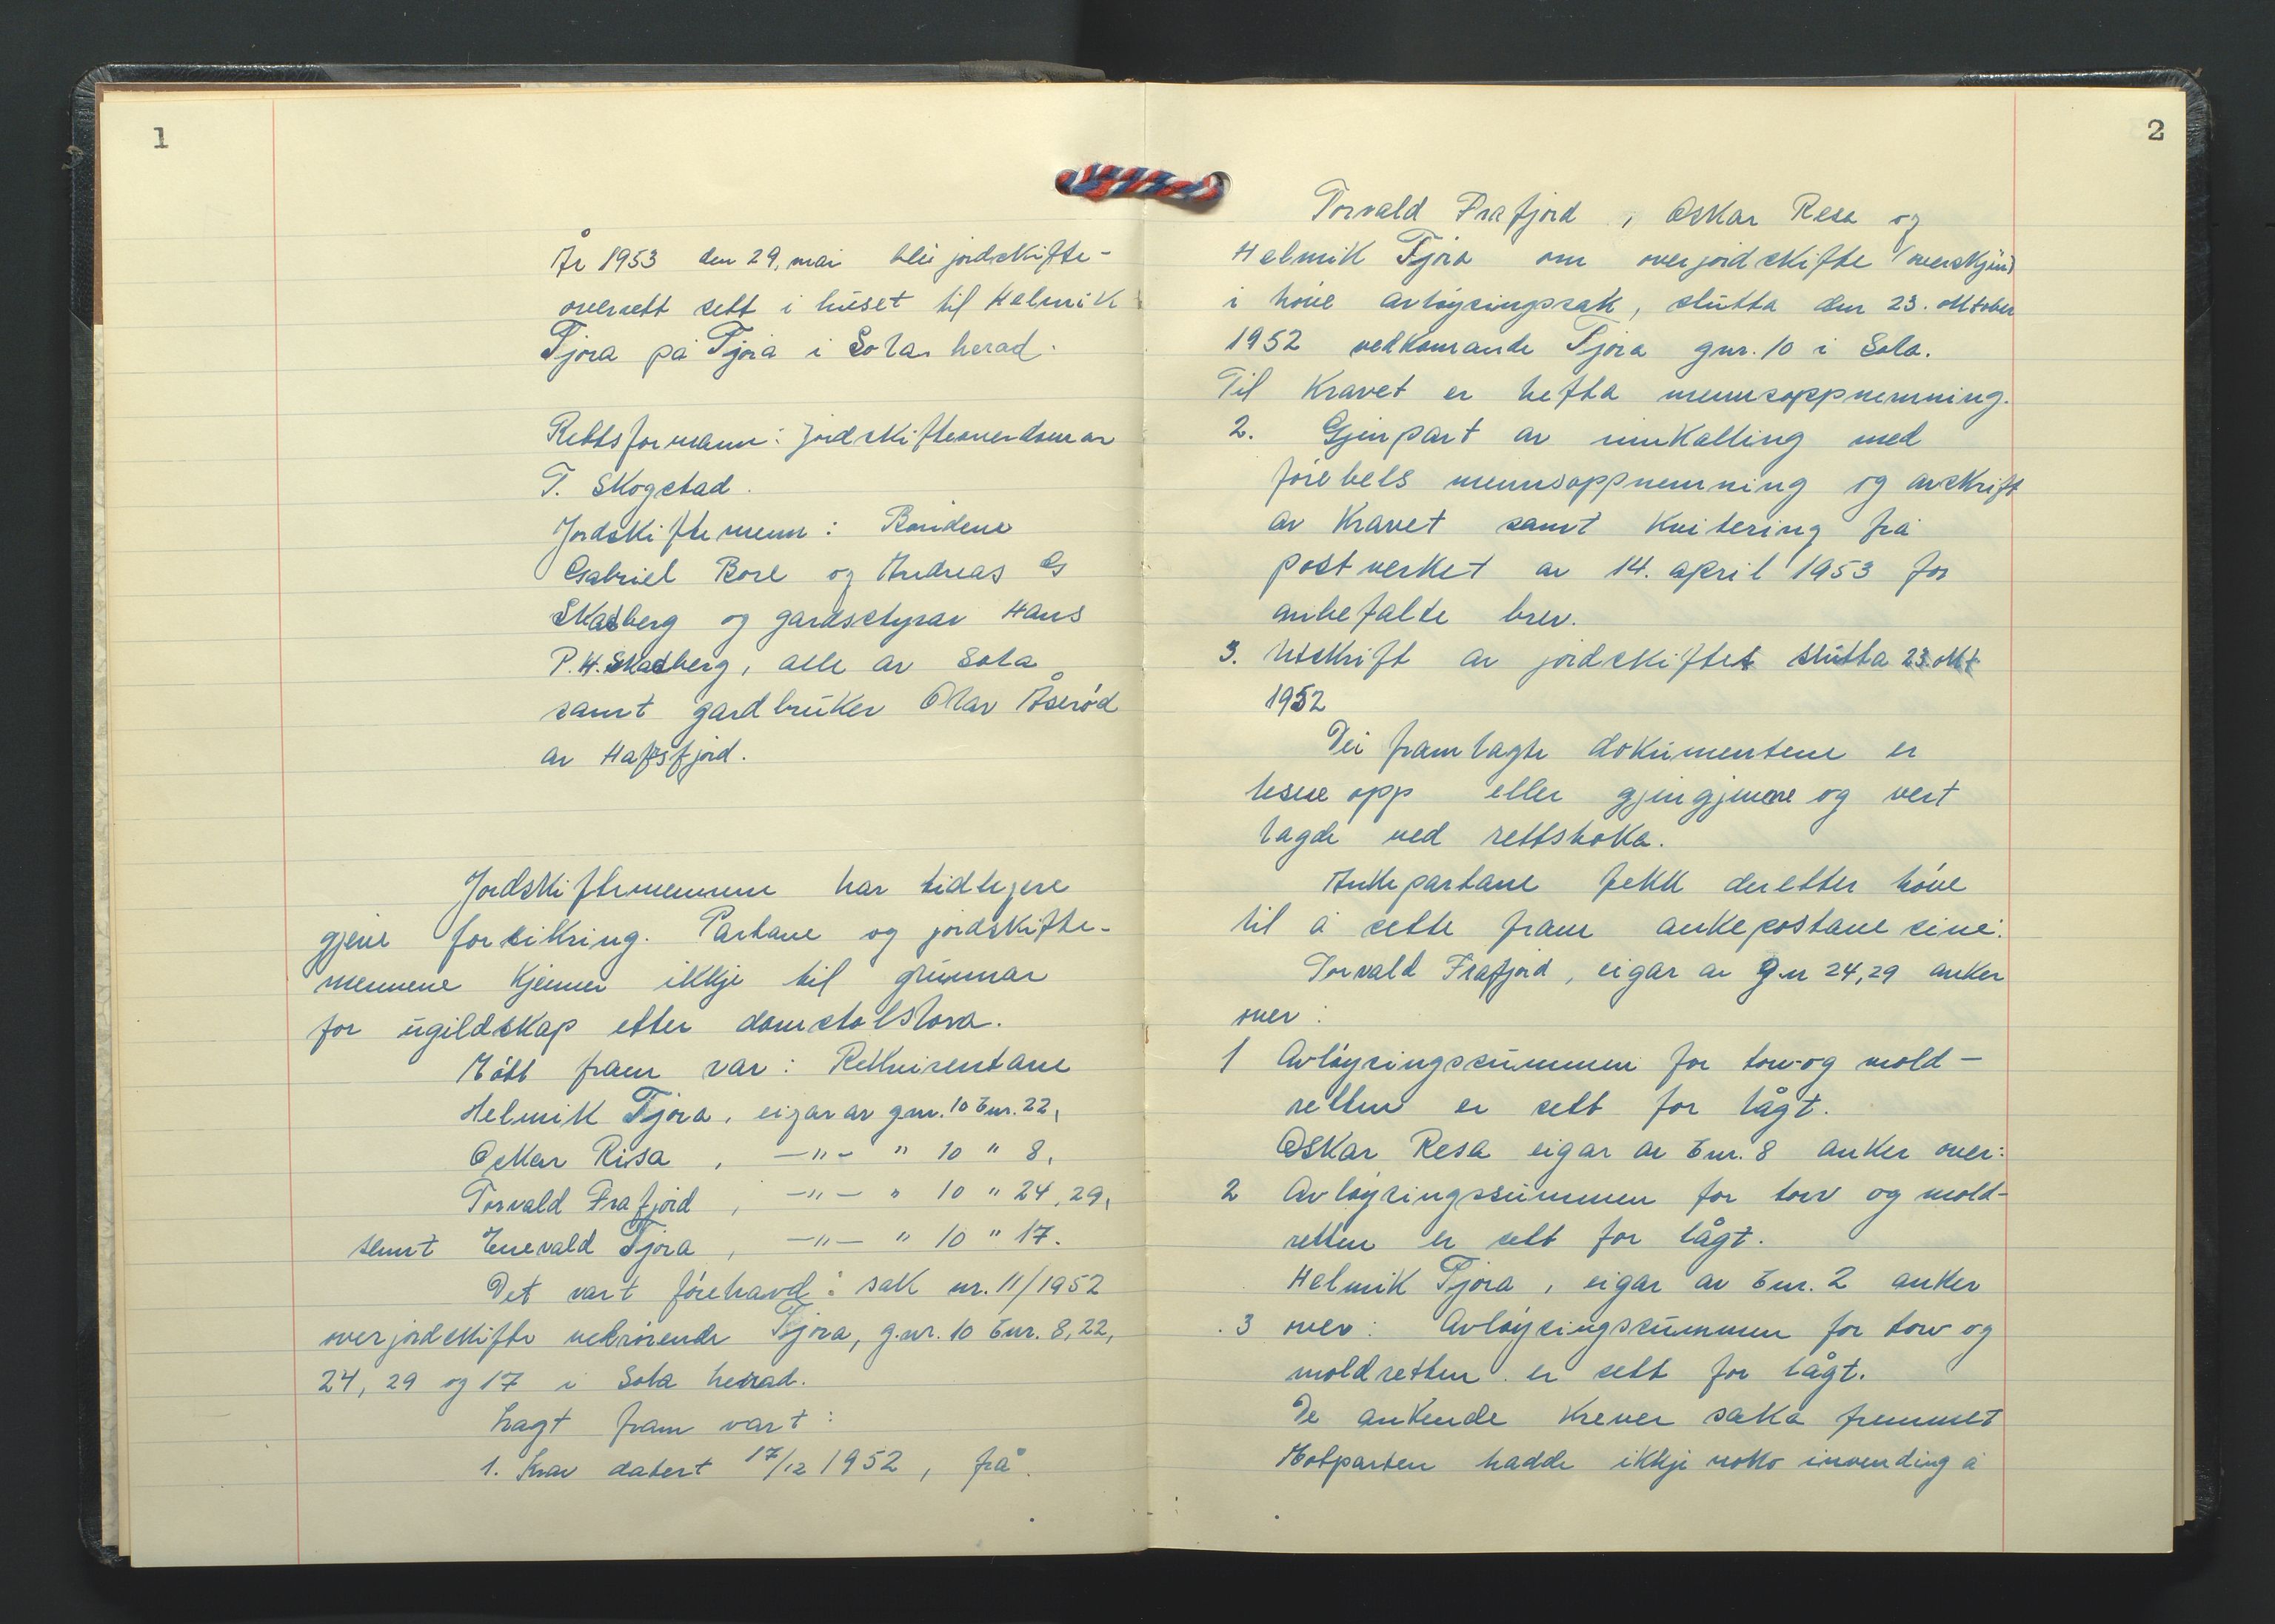 1
År 1953 den 29. mai blei jordskifte-
overrett sett i huset til Helmik
Tjora på Tjora i Sola herad.
Rettsformann: jordskifteoverdomar
T. Skogstad.
Jordskiftemenn: Bøndene
Gabriel Bore og Andreas
Skadberg og gardsstyrar Hans
P.H. Skadberg, alle av Sola
samt gardbruker Olav Åserød
av Hafrsfjord.
Jordskiftemennene har tidlegere
gjeve forsikring. Partane og jordskifte-
mennene kjenner ikkje til grunnar
for ugildskap etter domstolslova.
Møtt fram var: Rekvirentane
Helmik Tjora, eigar av gnr. 10 bnr. 22,
Oskar Risa, —"— " 10 " 8,
Torvald Frafjord, —"— " 10 " 24, 29,
samt Enevald Tjora, —"— " 10 " 17.
Det vart førehavd: sak nr. 11/1952
overjordskifte vedrørende Tjora, g.nr. 10 bnr. 8, 22,
24, 29 og 17 i Sola herad.
Lagt fram vart:
1. Krav datert 17/12 1952, frå
2
Torvald Frafjord, Oskar Resa og
Helmik Tjora om overjordskifte (overskjønn)
i høve avløysingssak, slutta den 23. oktober
1952 vedkomande Tjora gnr. 10 i Sola.
Til kravet er hefta mennsoppnemning.
2. Gjenpart av innkalling med
førebels mennsoppnemning og avskrift
av kravet samt kvitering frå
postverket av 14. april 1953 for
anbefalte brev.
3. Utskrift av jordskiftet slutta 23. okt
1952
Dei framlagte dokumentene er
lesne opp eller gjengjevne og vert
lagde ved rettsboka.
Ankepartane fekk deretter høve
til å sette fram ankepostane sine:
Torvald Frafjord, eigar av g.n 24, 29 anker
over:
1 Avløysingssummen for torv og mold-
retten er sett for lågt.
Oskar Resa eigar av bnr. 8 anker over:
2 Avløysingssummen for torv og mold-
retten er sett for lågt.
Helmik Tjora, eigar av bnr. 2 anker
3 over: Avløysingssummen for torv og
moldretten er sett for lågt.
De ankende krever saka fremmet
Motparten hadde ikkje noko innvending å